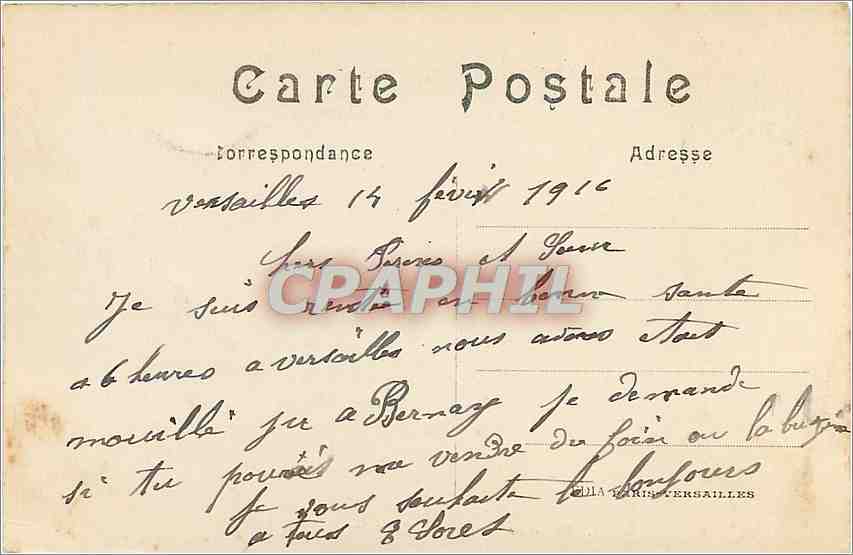 Carte Postale
Correspondance
Adresse
Versailles 14 février 1916
chers et Seur
CPAPHIL
Je suis rentré en bonne sante
a 6 heures a versailles nous avons etait
mouillé a Bernay je demande
si tu me vendre du foin ou la
Je vous souhaite le bonjours
a tous
EDIA PARIS-VERSAILLES